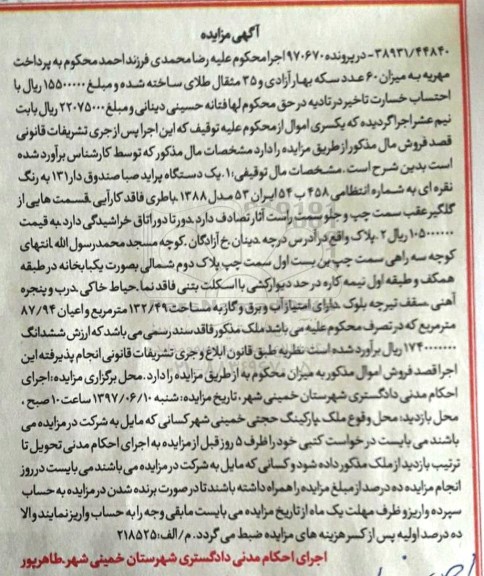 آگهی مزایده
۳۸۹۳۱/۴۴۸۴۰- در پرونده ۹۷۰۶۷۰ اجرا محکوم علیه رضا محمدی فرزند احمد محکوم به پرداخت
مهریه به میزان ۶۰ عدد سکه بهار آزادی و ۳۵ مثقال طلای ساخته شده و مبلغ ۱۵۵۰۰۰۰۰ ریال با
احتساب خسارت تاخیر در تادیه در حق محکوم لها فتانه حسینی دینانی و مبلغ ۲۲۰۷۵۰۰۰ ریال بابت
نیم عشر اجرا گردیده که یکسری اموال از محکوم علیه توقیف که این اجرا پس از جری تشریفات قانونی
قصد فروش مال مذکور از طریق مزایده را دارد مشخصات مال مذکور که توسط کارشناس برآورد شده
است بدین شرح است. مشخصات مال توقیفی: ۱. یک دستگاه پراید صبا صندوق دار ۱۳۱ به رنگ
نقره ای به شماره انتظامی ۴۵۸ ب ۵۴ ایران ۵۳ مدل ۱۳۸۸. باطری فاقد کارآیی. قسمت هایی از
گلگیر عقب سمت چپ و جلو سمت راست آثار تصادف دارد. دور تا دور اتاق خراشیدگی دارد. به قیمت
۱۰۵۰۰۰۰۰۰ ریال ۲. پلاک واقع در آدرس درچه. دینان. خ آزادگان. کوچه مسجد محمد رسول الله. انتهای
کوچه سه راهی سمت چپ بن بست اول سمت چپ پلاک دوم شمالی بصورت یکبابخانه در طبقه
همکف و طبقه اول نیمه کاره در حد دیوارکشی با اسکلت بتنی فاقد نما. حیاط خاکی. درب و پنجره
آهنی. سقف تیرچه بلوک. دارای امتیاز آب و برق و گاز به مساحت ۱۳۲/۴۹ مترمربع و اعیان ۸۷/۹۴
مترمربع که در تصرف محکوم علیه می باشد ملک مذکور فاقد سند رسمی می باشد که ارزش ششدانگ
۱۷۴۰۰۰۰۰۰۰ ریال برآورد شده است نظریه طبق قانون ابلاغ و جری تشریفات قانونی انجام پذیرفته این
اجرا قصد فروش اموال مذکور به میزان محکوم به از طریق مزایده را دارد. محل برگزاری مزایده: اجرای
احکام مدنی دادگستری شهرستان خمینی شهر. تاریخ مزایده: شنبه ۱۳۹۷/۰۶/۱۰ ساعت ۱۰ صبح.
محل بازدید: محل وقوع ملک. پارکینگ حجتی خمینی شهر کسانی که مایل به شرکت در مزایده می
باشند می بایست درخواست کتبی خود را ظرف ۵ روز قبل از مزایده به اجرای احکام مدنی تحویل تا
ترتیب بازدید از ملک مذکور داده شود و کسانی که مایل به شرکت در مزایده می باشند می بایست در روز
انجام مزایده ده درصد از مبلغ مزایده را همراه داشته باشند تا در صورت برنده شدن در مزایده به حساب
سپرده واریز و ظرف مهلت یک ماه از تاریخ مزایده می بایست مابقی وجه را به حساب واریز نمایند والا
ده درصد اولیه پس از کسر هزینه های مزایده ضبط می گردد. م/الف: ۲۱۸۵۲۵
اجرای احکام مدنی دادگستری شهرستان خمینی شهر. طاهرپور